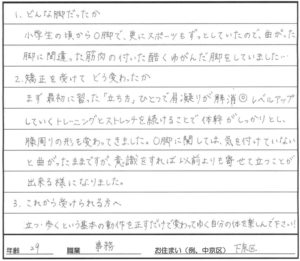 1. どんな脚だったか
小学生の頃からO脚で、更にスポーツもずっとしていたので、曲がった
脚に間違った筋肉の付いた酷くゆがんだ脚をしていました…
2. 矯正を受けて どう変わったか
まず最初に習った「立ち方」ひとつで肩凝りが解消◎レベルアップ
していくトレーニングとストレッチを続けることで体幹がしっかりとし、
膝周りの形も変わってきました。O脚に関しては、気を付けていない
と曲がったままですが、意識をすれば以前よりも寄せて立つことが
出来る様になりました。
3. これから受けられる方へ
立つ・歩くという基本の動作を正すだけで変わってゆく自分の体を楽しんで下さい!
年齢 29 職業 事務 お住まい(例、中京区) 下京区